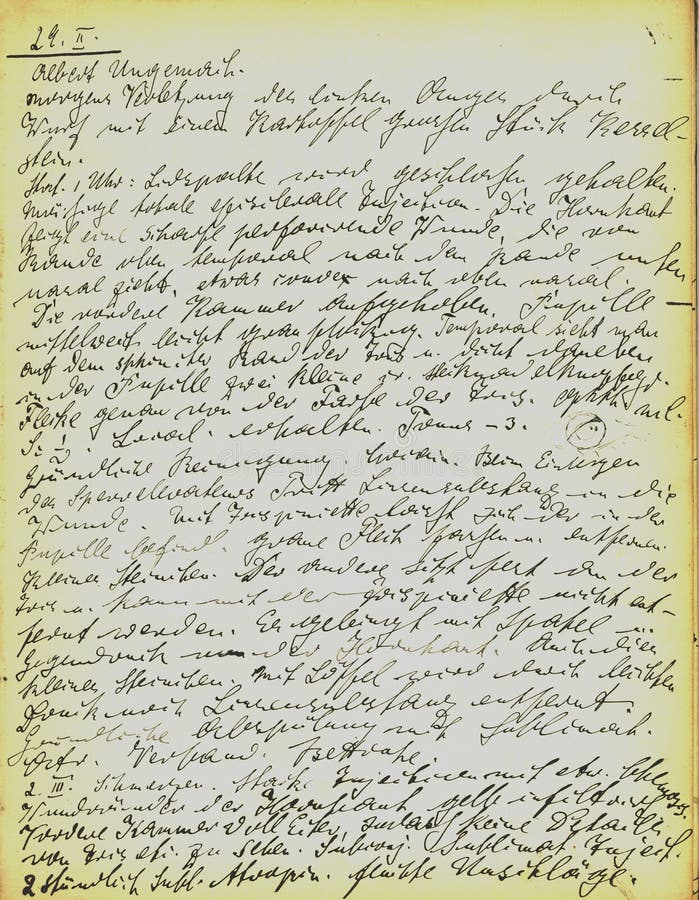 29. II.
Albert Ungemach.
morgens Verletzung des linken Auges durch
Wurf mit einem Kartoffel grossen Stück Kessel-
stein.
Stat. 1 Uhr: Lidspalte wird geschlossen gehalten.
Mässige totale episclerale Injection. Die Hornhaut
zeigt eine scharfe perforierende Wunde, die vom
Rande oben temporal nach dem Rande unten
nasal zieht, etwas convex nach oben nasal.
Die vordere Kammer aufgehoben. Pupille
mittelweit, leicht grau. Temporal sieht man
auf dem sphincter Rand der Iris u. dicht daneben
in der Pupille zwei kleine stecknadelknopfgr.
Fleke genau von der Farbe der Iris.
S: Local. erhalten. Tonus -3.
Gründliche Reinigung. Cocain. Beim Einlegen
des Sperrelevateurs tritt Linsensubstanz in die
Wunde. Mit Irispincette lässt sich der in der
Pupille befindl. graue Flek fassen u. entfernen.
Kleines Steinchen. Der andere sitzt fest an der
Iris u. kann mit der Irispincette nicht ent-
fernt werden. Es gelingt mit Spatel u.
Gegendruck von der Hornhaut. Auch dies
kleines Steinchen. Mit Löffel wird durch leichten
Druck noch Linsensubstanz entfernt.
Gründliche Abspülung mit Sublimat.
Atr. Verband. Bettruhe.
2. III. Schmerzen. Starke Injection mit etw. Chemosis.
Wundränder der Hornhaut gelb infiltriert
Vordere Kammer voll Eiter, sodass keine Details
von Iris etc. zu sehen. Subconj. Sublimat. Inject.
2 stündlich Subl. Atropin. feuchte Umschläge.